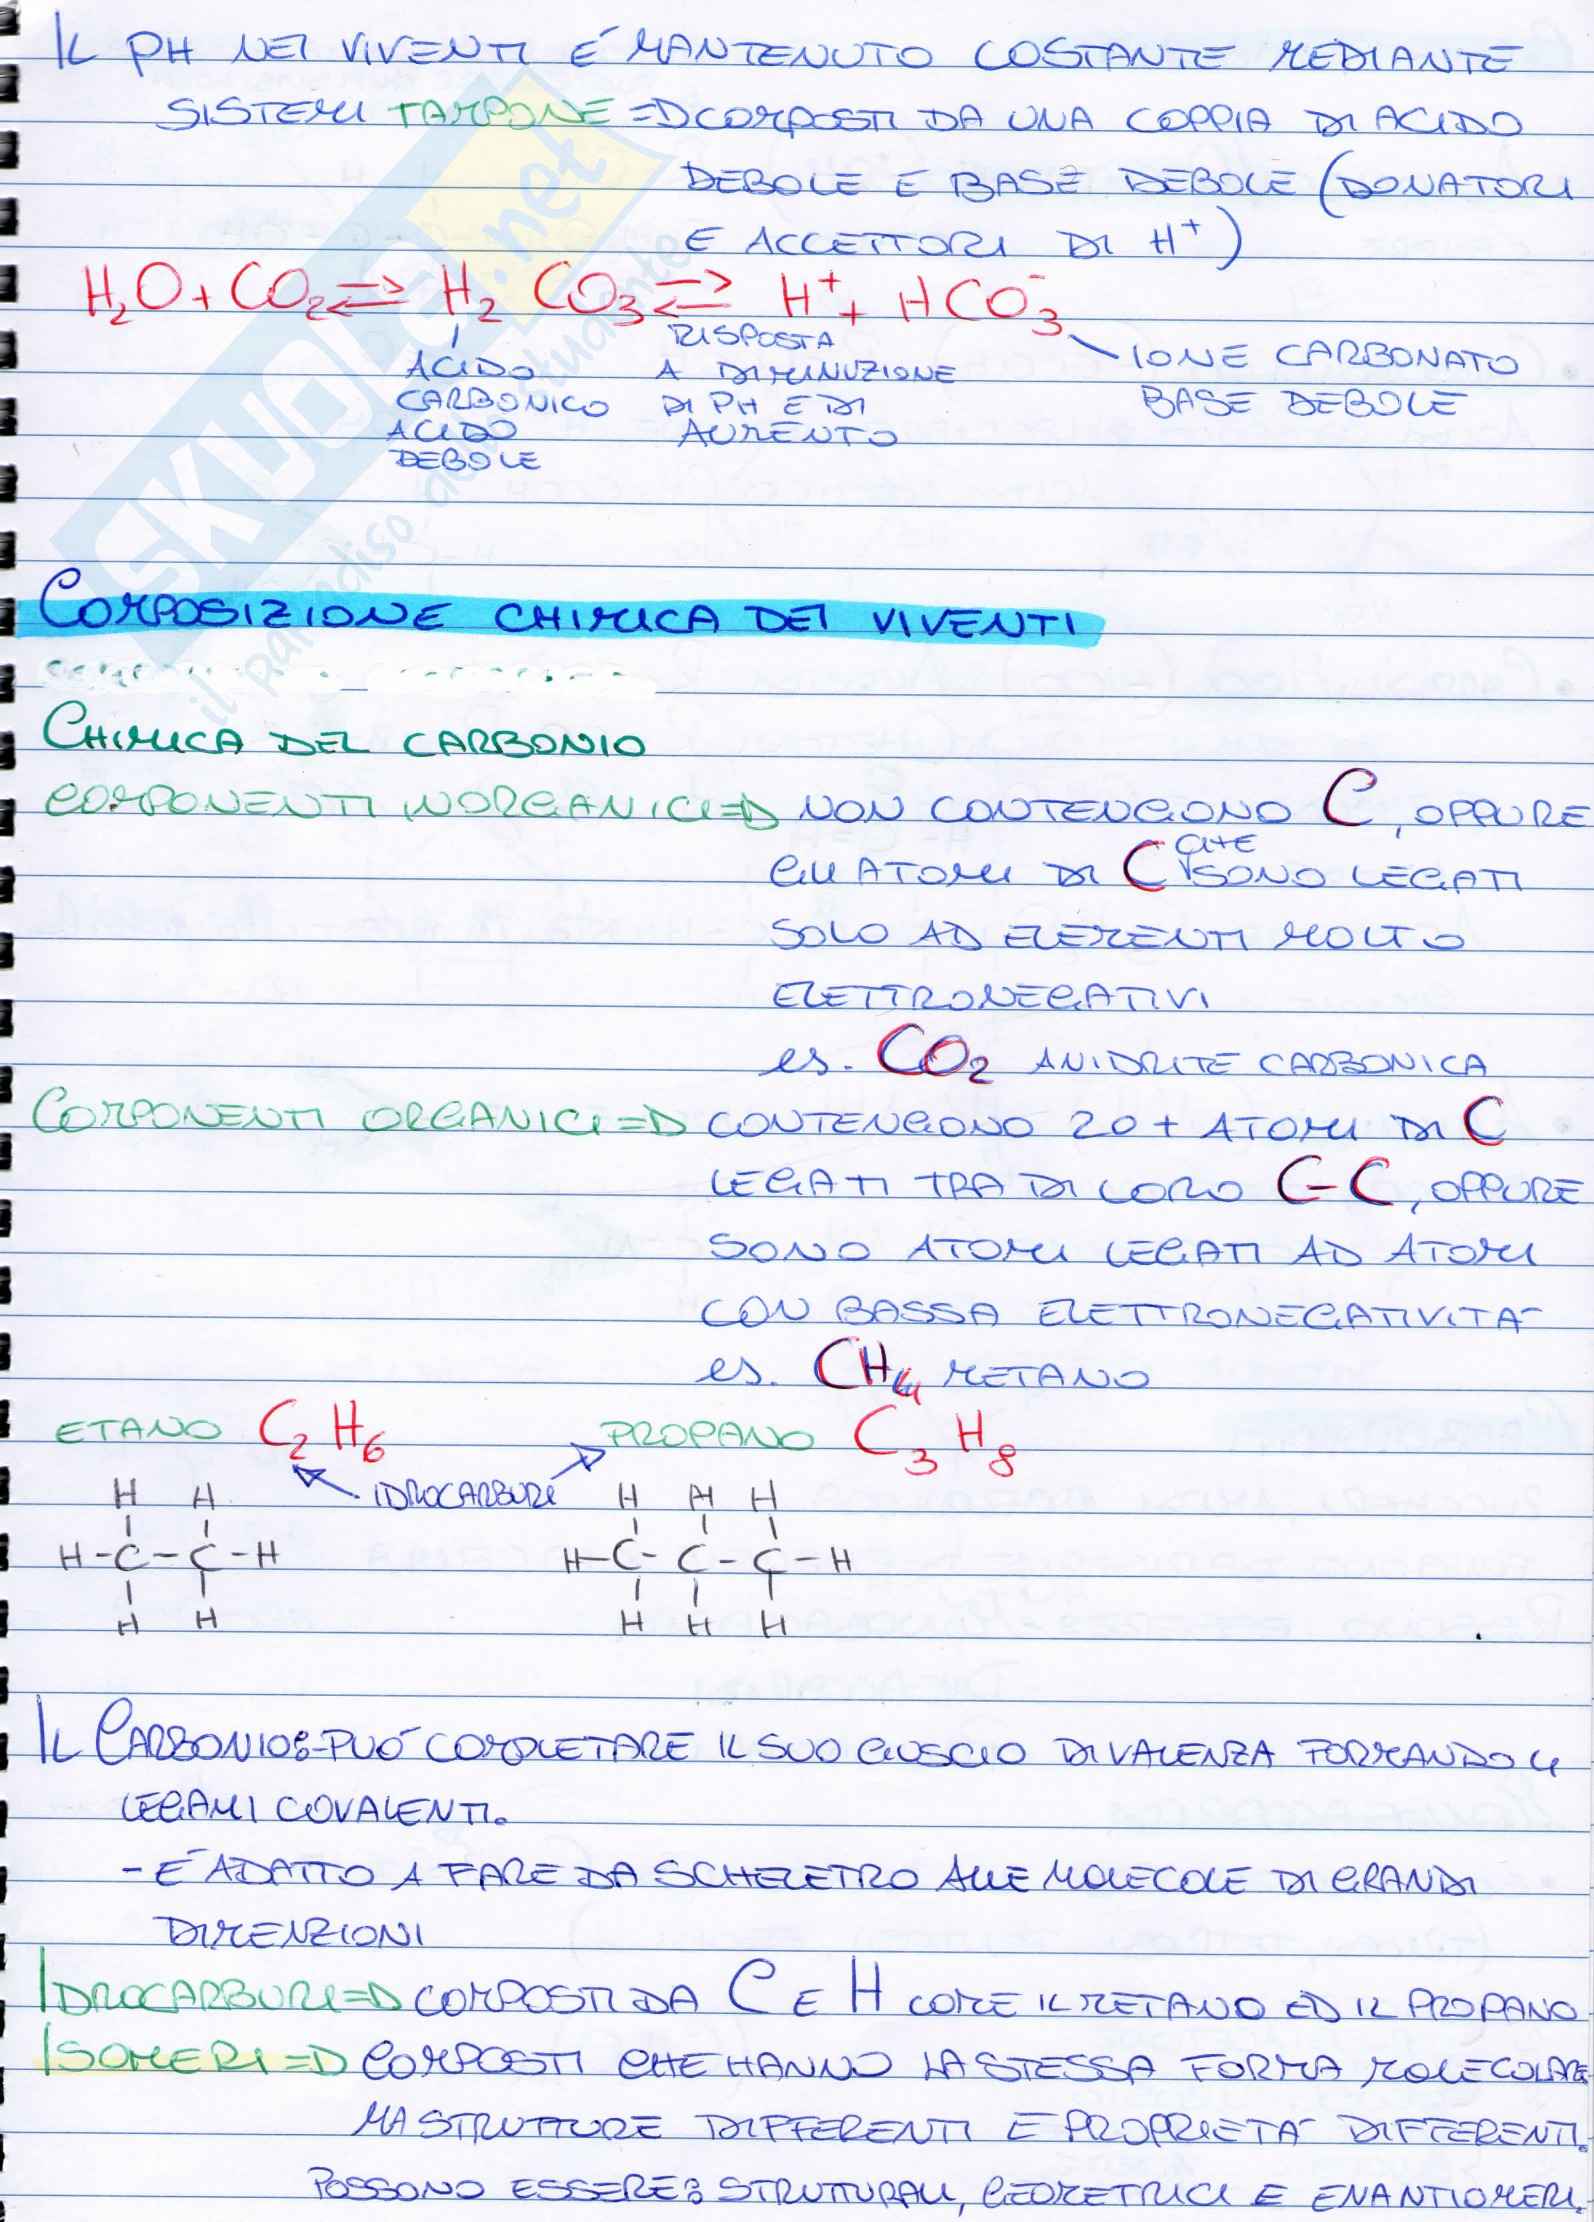 IL PH NEI VIVENTI É MANTENUTO COSTANTE MEDIANTE
SISTEMI TAMPONE => COMPOSTI DA UNA COPPIA DI ACIDO
DEBOLE E BASE DEBOLE (DONATORI
E ACCETTORI DI H⁺)
H₂O + CO₂ ⇌ H₂CO₃ ⇌ H⁺ + HCO₃⁻
ACIDO CARBONICO ACIDO DEBOLE
RISPOSTA A DIMINUZIONE DI PH E DI AUMENTO
IONE CARBONATO BASE DEBOLE
SKUOLA.net
il paradiso dello studente
COMPOSIZIONE CHIMICA DEI VIVENTI
CHIMICA DEL CARBONIO
COMPONENTI INORGANICI => NON CONTENGONO C, OPPURE
GLI ATOMI DI C CHE SONO LEGATI
SOLO AD ELEMENTI MOLTO
ELETTRONEGATIVI
es. CO₂ ANIDRITE CARBONICA
COMPONENTI ORGANICI => CONTENGONO 2 O + ATOMI DI C
LEGATI TRA DI LORO C-C, OPPURE
SONO ATOMI LEGATI AD ATOMI
CON BASSA ELETTRONEGATIVITÁ
es. CH₄ METANO
ETANO C₂H₆ PROPANO C₃H₈
IDROCARBURI
H H H H H
H-C-C-H H-C-C-C-H
H H H H H
IL CARBONIO: -PUÓ COMPLETARE IL SUO GUSCIO DI VALENZA FORMANDO 4
LEGAMI COVALENTI.
- É ADATTO A FARE DA SCHELETRO ALLE MOLECOLE DI GRANDI
DIMENZIONI
IDROCARBURI => COMPOSTI DA C E H COME IL METANO ED IL PROPANO
ISOMERI => COMPOSTI CHE HANNO LA STESSA FORMA MOLECOLARE
MA STRUTTURE DIFFERENTI E PROPRIETÁ DIFFERENTI.
POSSONO ESSERE: STRUTTURALI, GEOMETRICI E ENANTIOMERI.